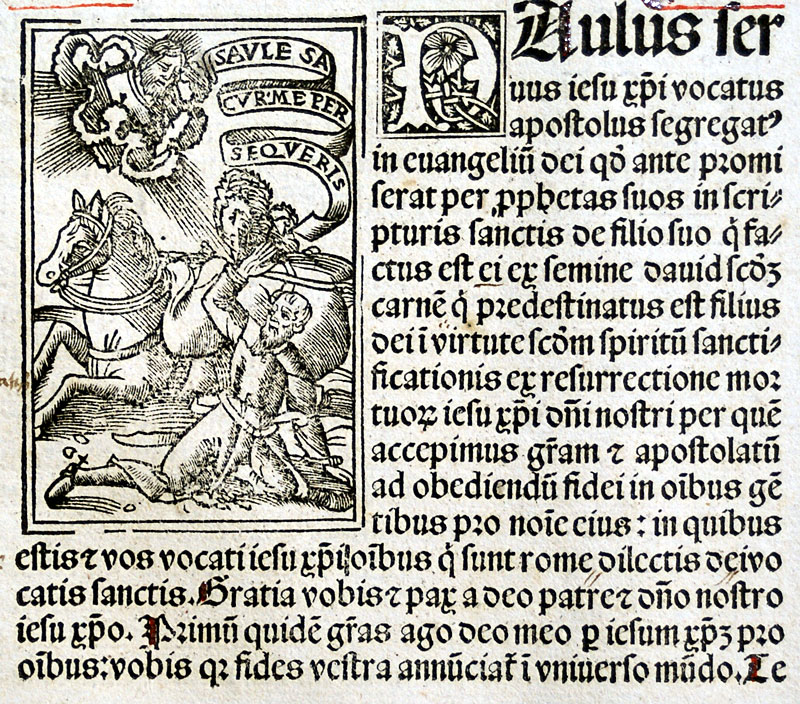 SAVLE SA
CVR·ME·PER
SEQVERIS
PAulus ser
uus iesu xp̄i vocatus
apostolus segregatꝰ
in euangeliū dei qd̄ ante promi
serat per ꝓphetas suos in scri⸗
pturis sanctis de filio suo q̄ fa⸗
ctus est ei ex semine dauid scd̄ʒ
carnē q̄ predestinatus est filius
dei ī virtute scd̄m spiritū sancti⸗
ficationis ex resurrectione mor
tuoꝝ iesu xp̄i dn̄i nostri per quē
accepimus gr̄am ⁊ apostolatū
ad obediendū fidei in oībus gē
tibus pro noīe eius: in quibus
estis ⁊ vos vocati iesu xp̄i oībus q̄ sunt rome dilectis dei vo
catis sanctis. Gratia vobis ⁊ pax a deo patre ⁊ dn̄o nostro
iesu xp̄o. Primū quidē gr̄as ago deo meo ꝑ iesum xp̄ʒ pro
oībus: vobis qꝛ fides vestra annūciat᷑ ī vniuerso mūdo. Te